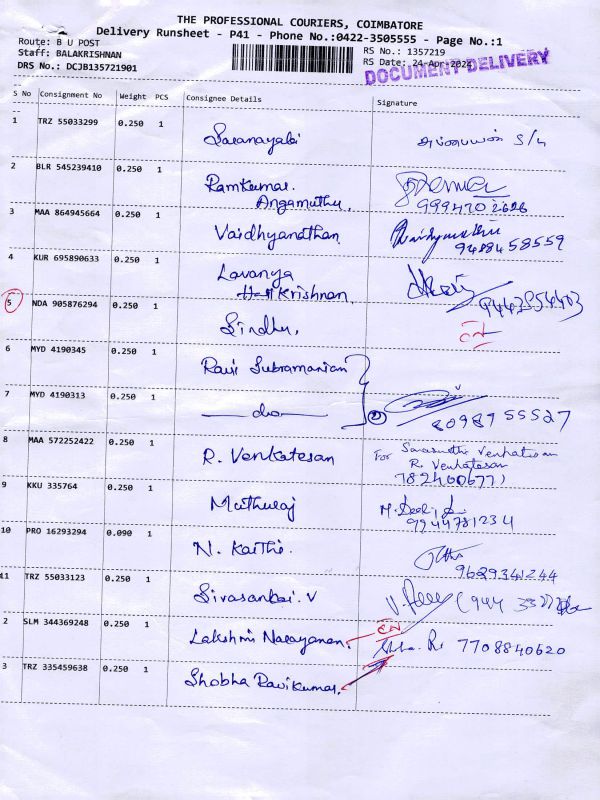 THE PROFESSIONAL COURIERS, COIMBATORE
Delivery Runsheet - P41 - Phone No.:0422-3505555 - Page No.:1
Route: B U POST
Staff: BALAKRISHNAN
DRS No.: DCJB135721901
RS No.: 1357219
RS Date: 24-Apr-2024
DOCUMENT DELIVERY
S No Consignment No Weight PCS Consignee Details Signature
1 TRZ 55033299 0.250 1 Saranayabi S/4
2 BLR 545239410 0.250 1 Ramkumar.
Angamuthu, 9994702626
3 MAA 864945664 0.250 1 Vaidhyanathan 9488458559
4 KUR 695890633 0.250 1 Lavanya
Krishnan 9443854403
5 NDA 905876294 0.250 1 Sindhu,
6 MYD 4190345 0.250 1 Ravi Subramanian
7 MYD 4190313 0.250 1 —do— 2 8098755527
8 MAA 572252422 0.250 1 R. Venkatesan For Saraswathi Venkatesan
R. Venkatesan
7824006771
9 KKU 335764 0.250 1 Muthuraj 9944781234
10 PRO 16293294 0.090 1 N. Karthi. 9629341244
11 TRZ 55033123 0.250 1 Sivasankari. V
2 SLM 344369248 0.250 1 Lakshmi Narayanan. 7708840620
3 TRZ 335459638 0.250 1 Shobha RaviKumar.